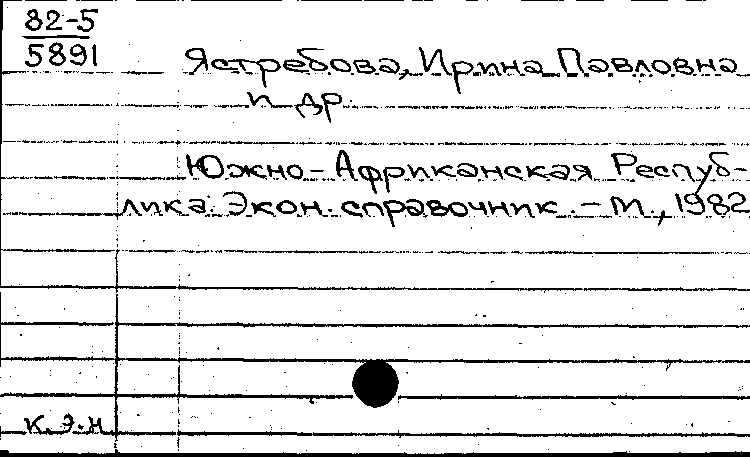 82-5
5891
Ястребова, Ирина Павловна
и др.
Южно-Африканская Респуб-
лика. Экон. справочник. - М., 1982
к.э.н.